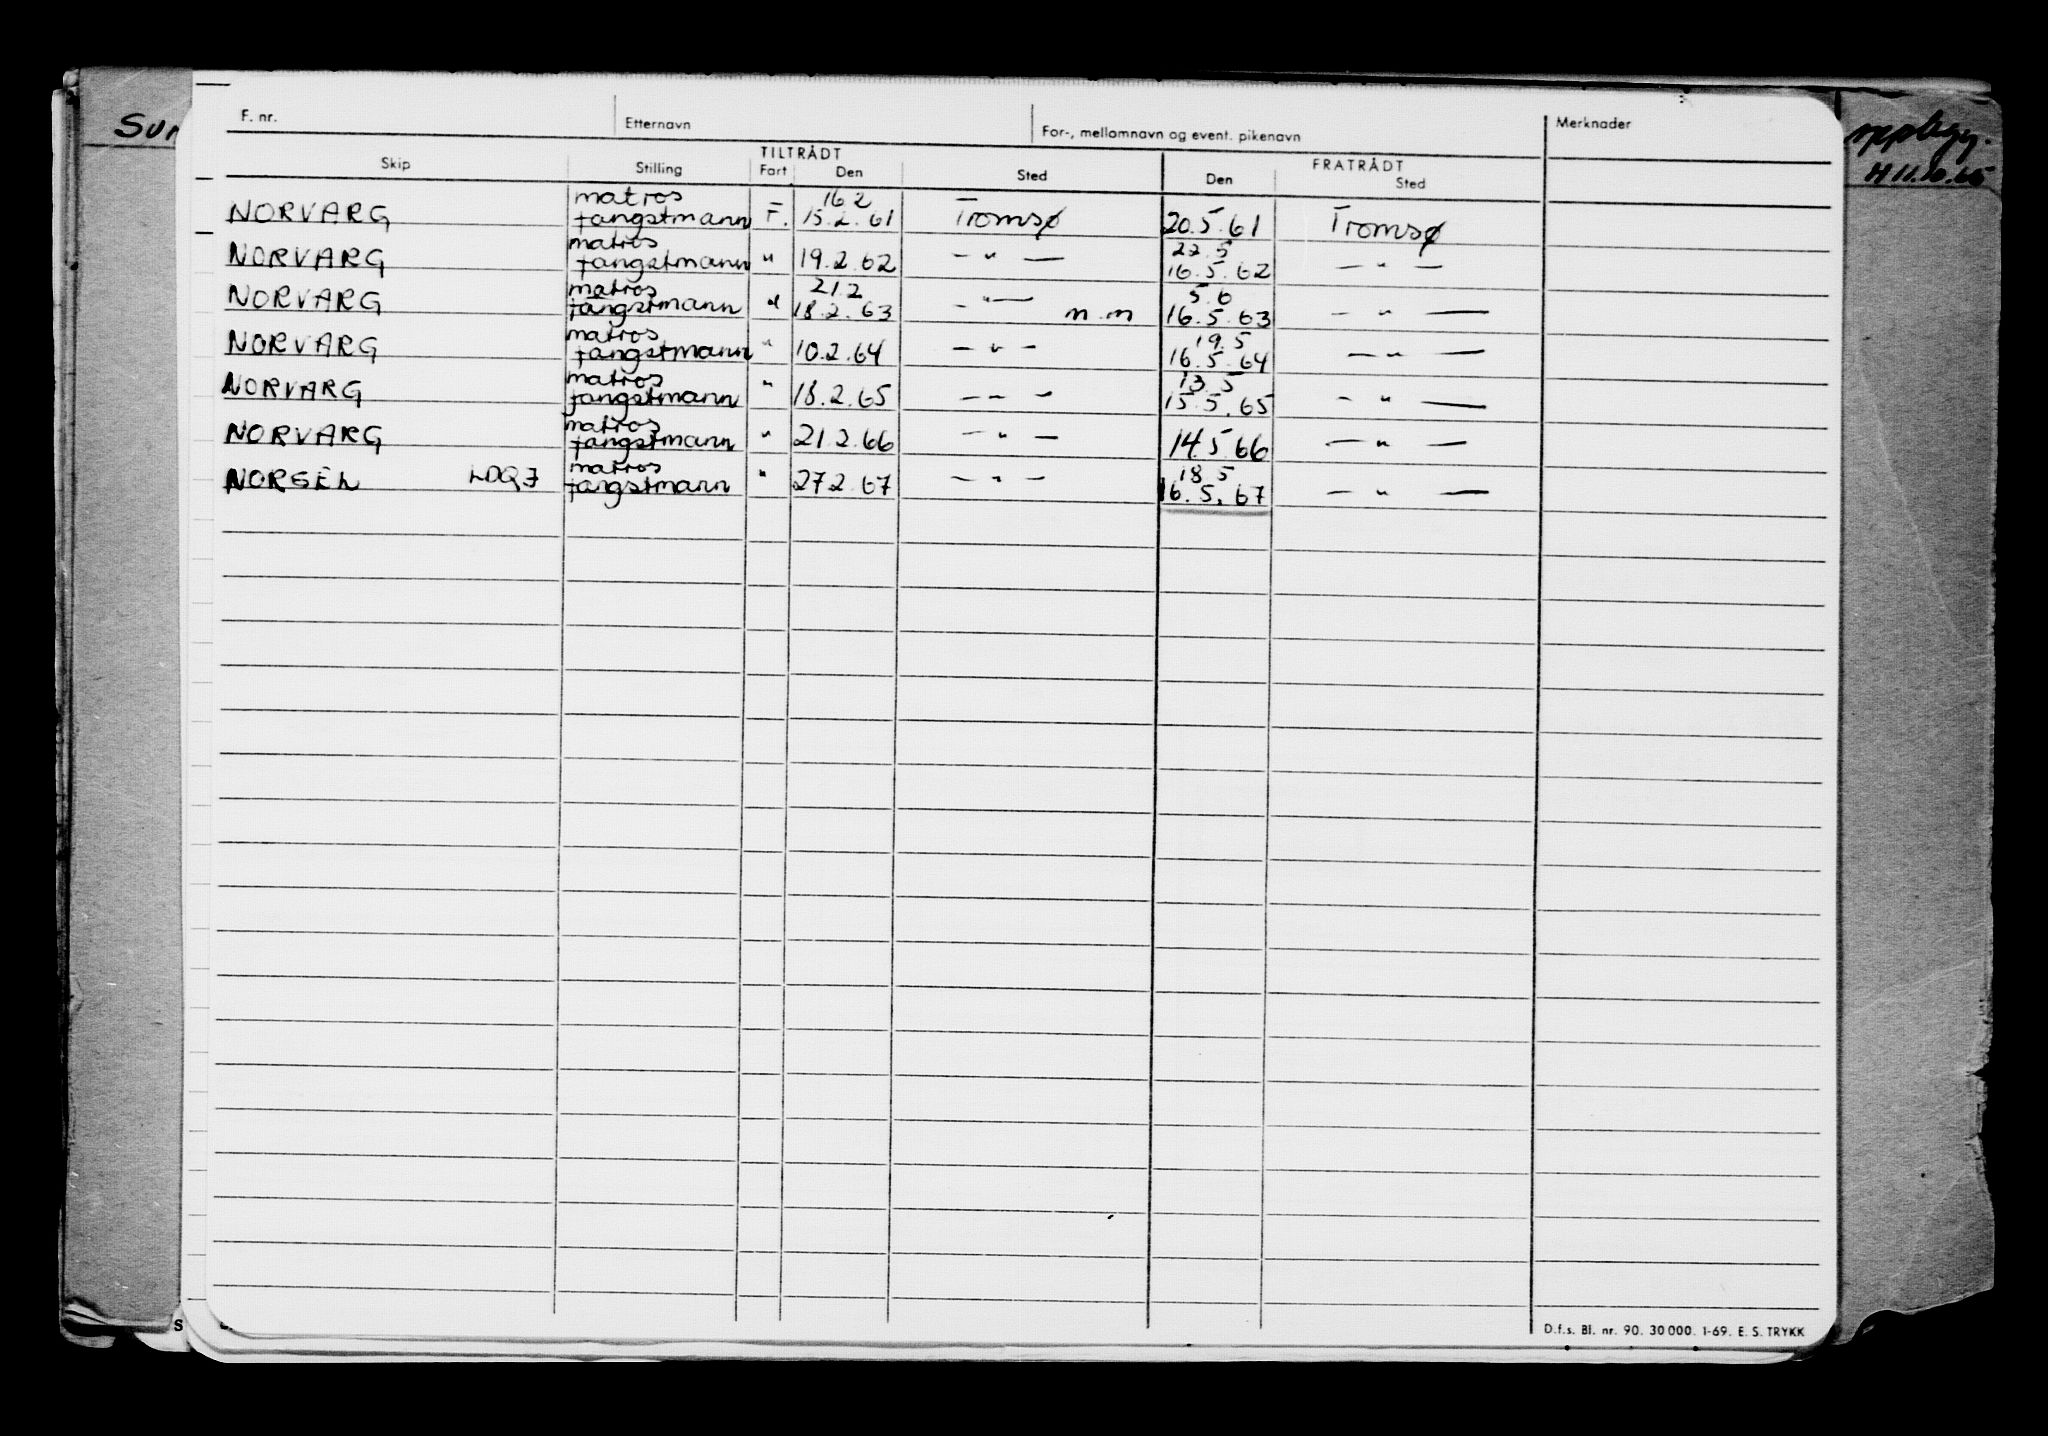 F. nr. Etternavn For-, mellomnavn og event. pikenavn Merknader
TILTRÅDT FRATRÅDT
Skip Stilling Fart Den Sted Den Sted
matros 16 2
NORVARG fangstmann F. 15.2.61 Tromsø 20.5.61 Tromsø
matros 22.5
NORVARG fangstmann " 19.2.62 — " — 16.5.62 — " —
matros 21.2 5.6
NORVARG fangstmann " 18.2.63 — " — m.m 16.5.63 — " —
matros 19.5
NORVARG fangstmann " 10.2.64 — " — 16.5.64 — " —
matros 13.5
NORVARG fangstmann " 18.2.65 — " — 15.5.65 — " —
matros
NORVARG fangstmann " 21.2.66 — " — 14.5.66 — " —
matros 18.5
NORSEL LDQJ fangstmann " 27.2.67 — " — 16.5.67 — " —
D.f.s. Bl. nr. 90. 30 000. 1-69. E. S. TRYKK